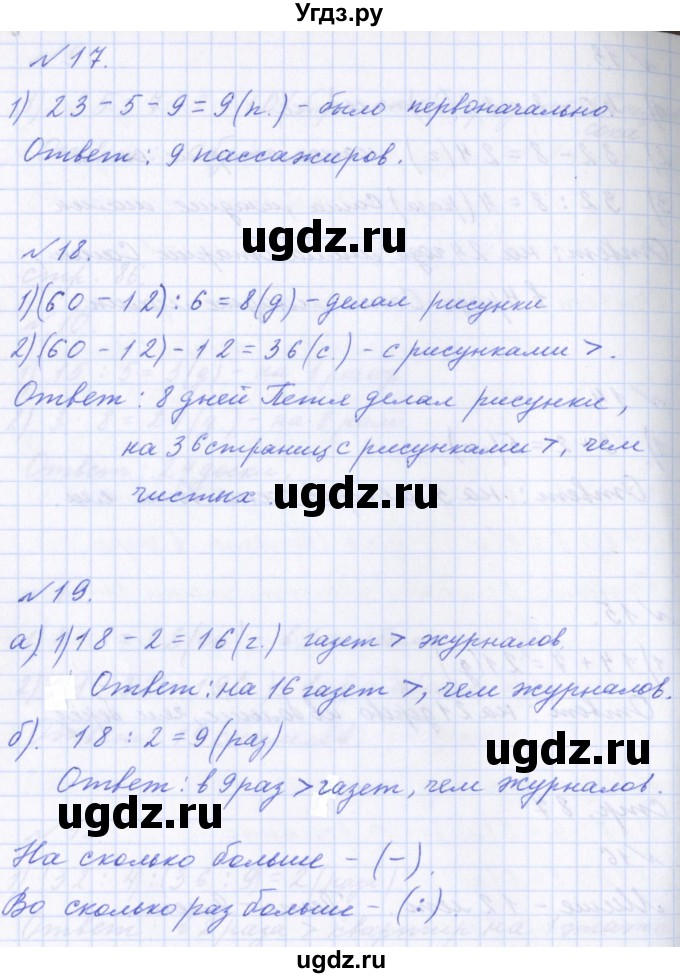 Угдз.ру
№17.
1) 23 - 5 - 9 = 9 (п.) - было первоначально.
Ответ: 9 пассажиров.
ugdz.ru
№18.
1) (60 - 12) : 6 = 8 (д) - делал рисунки
2) (60 - 12) - 12 = 36 (с.) - с рисунками >.
Ответ: 8 дней Петя делал рисунки,
на 36 страниц с рисунками >, чем
чистых.
ugdz.ru
№19.
а) 1) 18 - 2 = 16 (г.) газет > журналов.
Ответ: на 16 газет >, чем журналов.
б). 18 : 2 = 9 (раз)
ugdz.ru
Ответ: в 9 раз > газет, чем журналов.
ugdz.ru
На сколько больше - (-).
Во сколько раз больше - (:)
ugdz.ru